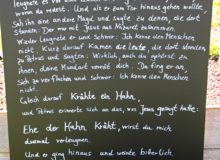 leugnete er vor
wovon du redest. Und als er zum Tor hinaus gehen wollte,
sah ihn eine andere Magd und sagte zu denen, die dort
standen: Der war mit Jesus aus Nazaret zusammen.
Wieder leugnete er und schwor: Ich kenne den Menschen
nicht. Kurz darauf kamen die Leute, die dort standen,
zu Petrus und sagten: Wirklich, auch du gehörst zu
ihnen, deine Mundart verrät dich. Da fing er an,
sich zu verfluchen und schwor: Ich kenne den Menschen
nicht.
Gleich darauf Krähte ein Hahn,
und Petrus erinnerte sich an das, was Jesus gesagt hatte:
Ehe der Hahn Kräht, wirst du mich
dreimal verleugnen.
Und er ging hinaus und weinte bitterlich.